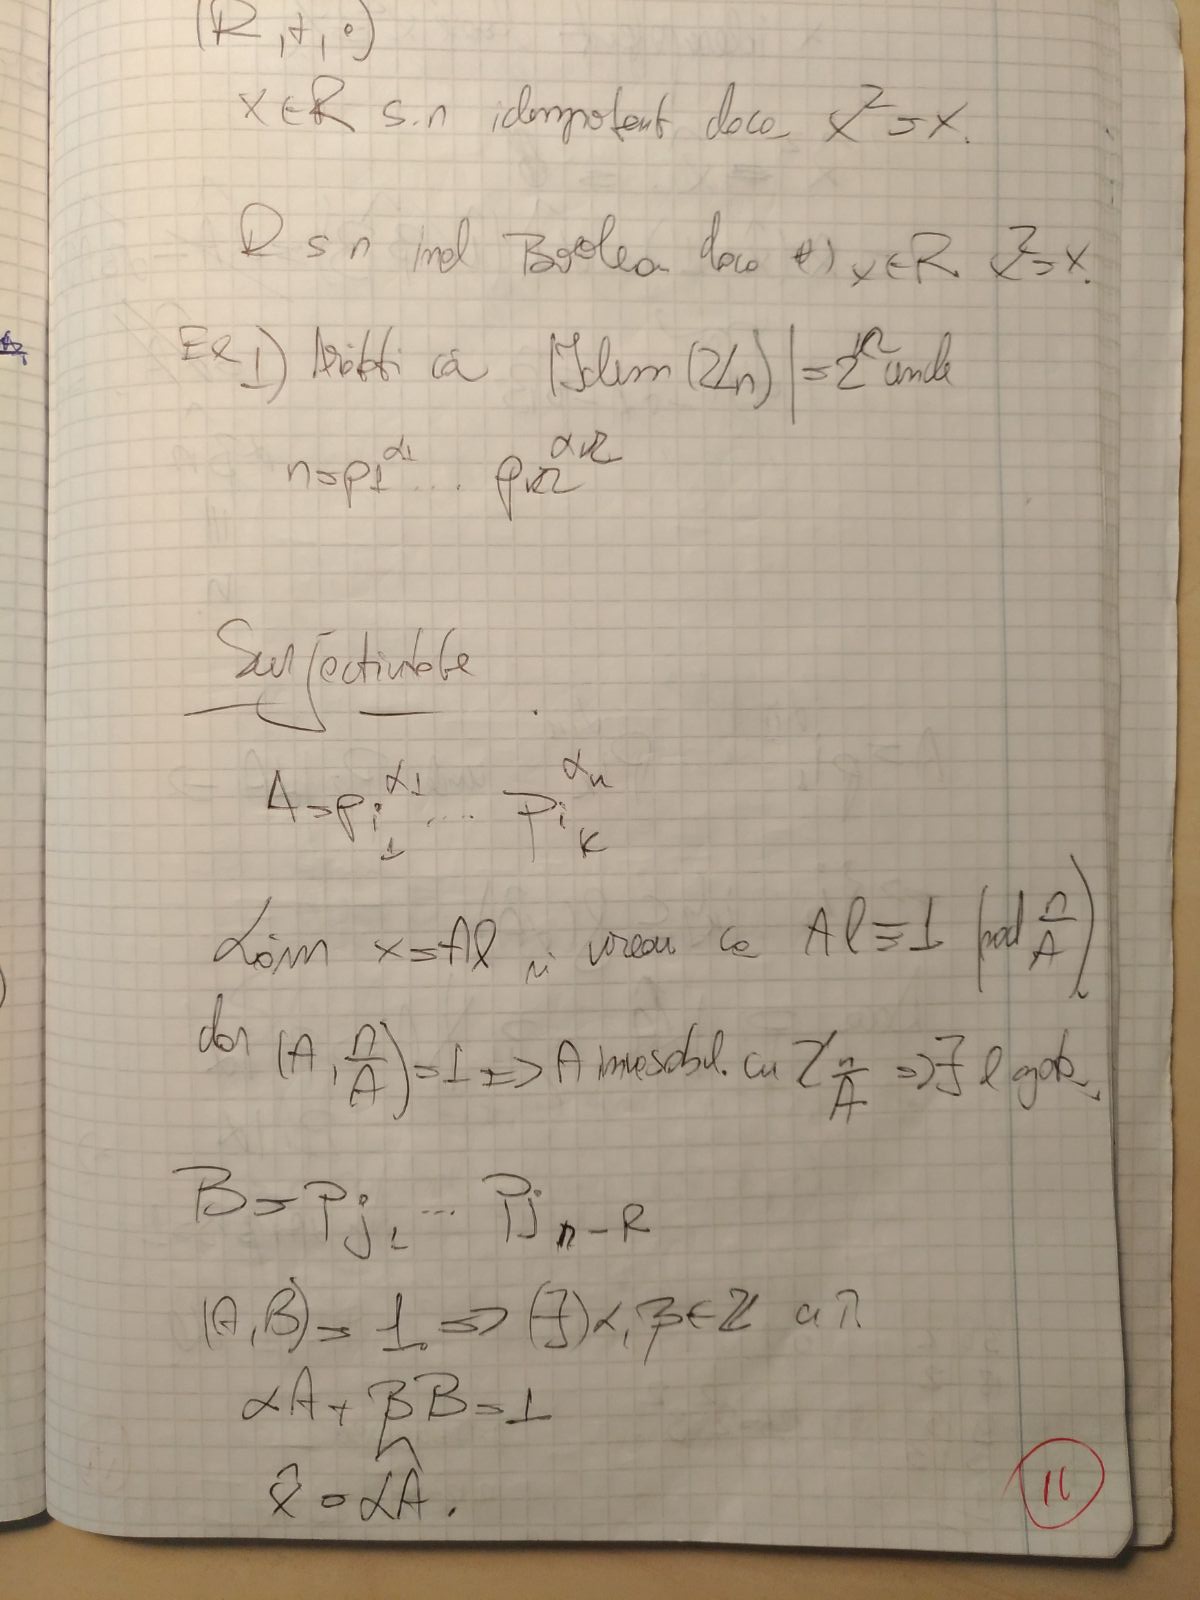 (R,+,·)
x∈R s.n idempotent daca x²=x.
R s n inel Boolean daca (∀) x∈R x²=x.
Ex 1) Arătăti că |Idem(ℤn)|=2^r unde
n=p1^α1 ... pr^αr
Surjectivitate
A=pi1^α1 ... pik^αk
Lăm x=Al și vreau ca Al≡1 (mod n/A)
dar (A, n/A)=1 => A inversabil cu ℤn/A => ∃ l
B=Pj1 ... Pjn-k
(A,B)=1 => (∃)α,β∈ℤ a î
αA+βB=1
x̂=α̂A.
11